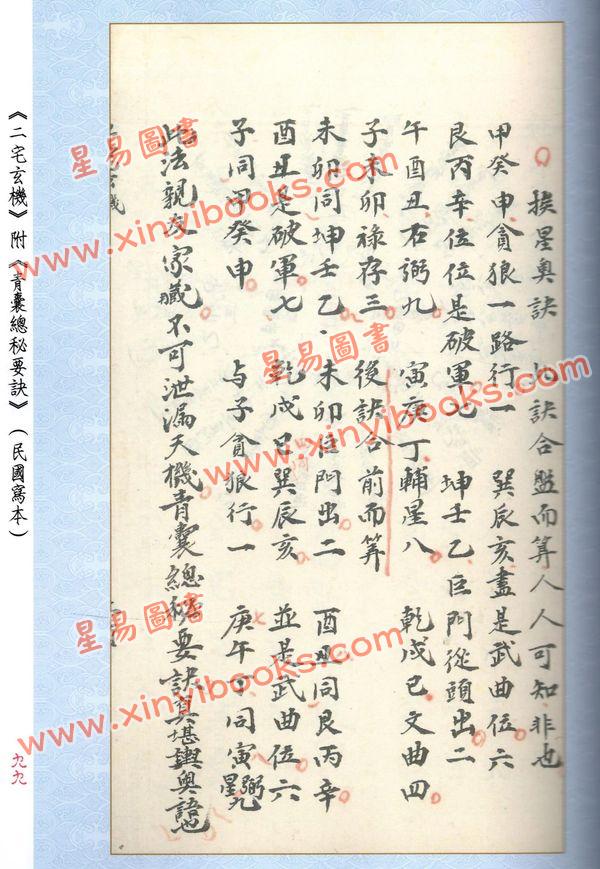 挨星奧訣 此訣合盤而算人人可知非也
甲癸申貪狼一路行一 巽辰亥盡是武曲位六
艮丙辛位位是破軍七 坤壬乙巨門從頭出二
午酉丑右弼九 寅庚丁輔星八 乾戌巳文曲四
子未卯祿存三 後訣合前而算
未卯同坤壬乙 未卯位門出二 酉丑同艮丙辛
酉丑是破軍七 乾戌巳巽辰亥 並是武曲位六
子同甲癸申 与子貪狼行一 庚午丁同寅弼星九
此法親友家藏不可泄漏天機青囊總秘要訣真堪輿奧語也
《二宅玄機》附《青囊總秘要訣》(民國寫本)
九九
星易圖書
www.xinyibooks.com
星易圖書
www.xinyibooks.com
星易圖書
www.xinyibooks.com